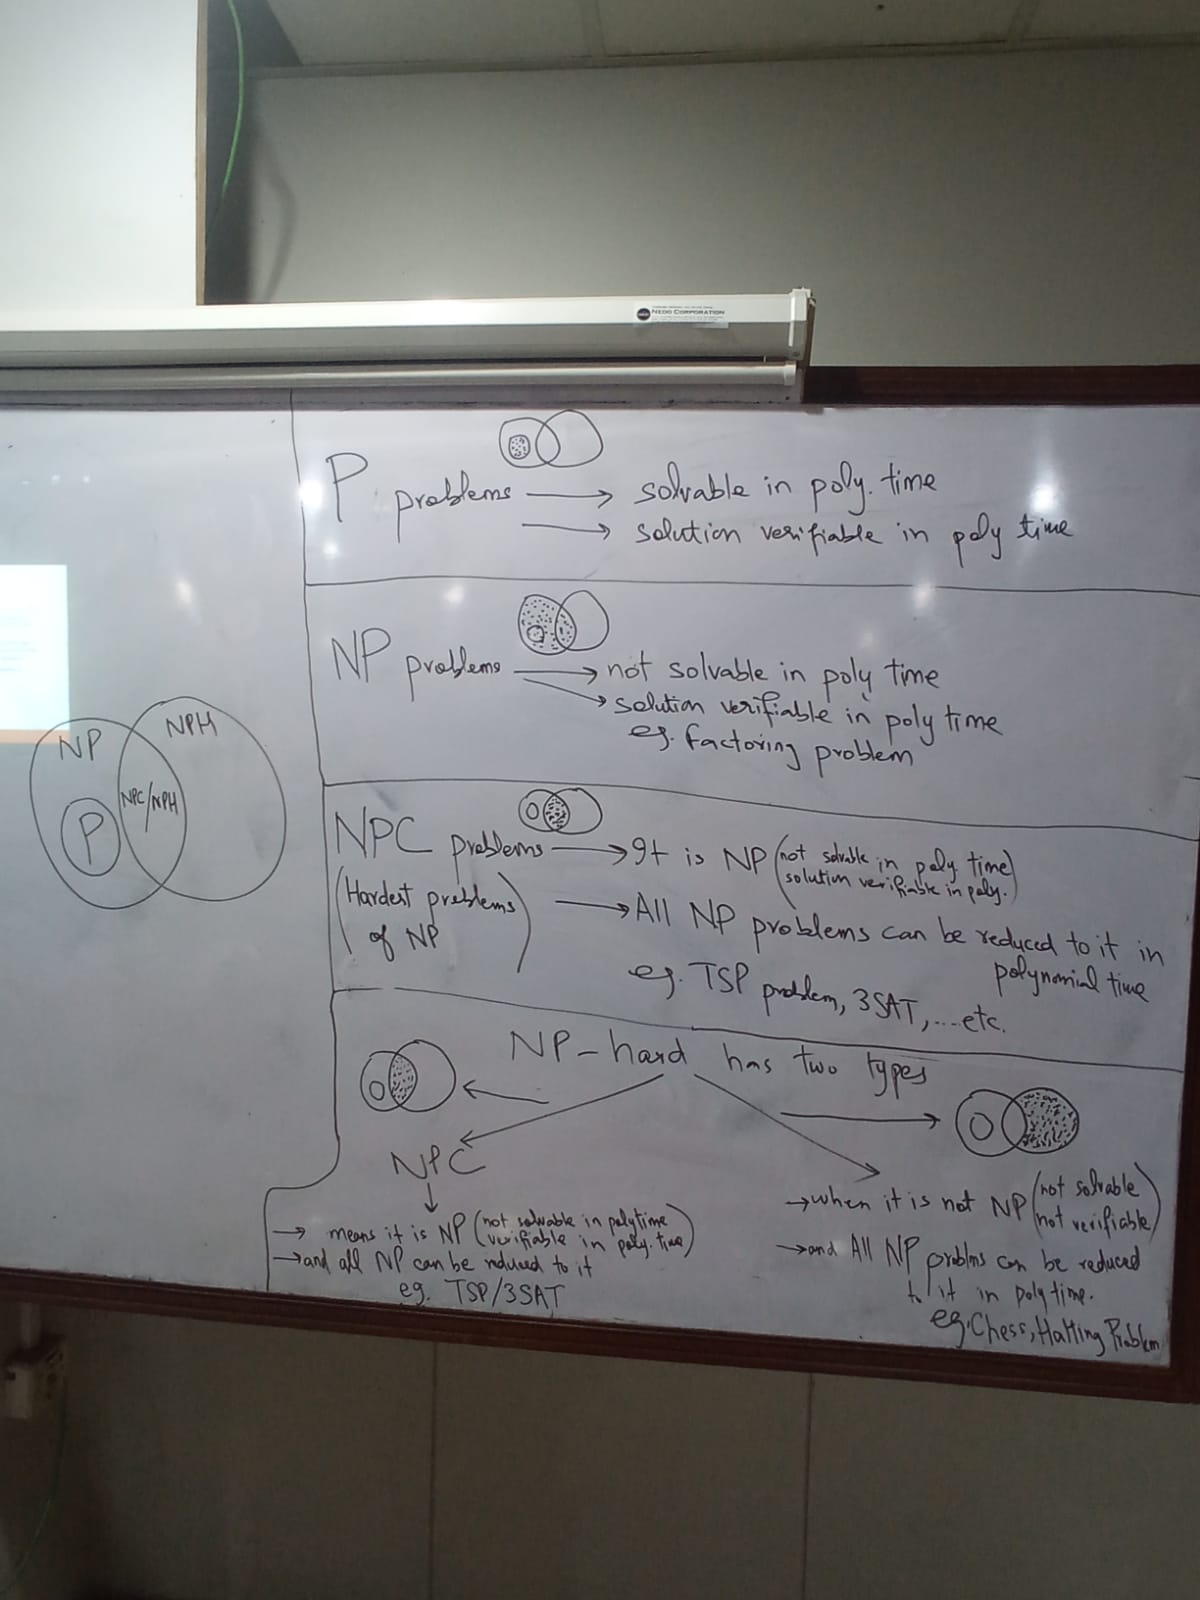 NEDO CORPORATION
P problems → solvable in poly. time
→ solution verifiable in poly time
NP problems → not solvable in poly time
→ solution verifiable in poly time
eg. factoring problem
NP
NPH
NPC/NPH
P
NPC problems → It is NP (not solvable in poly time)
solution verifiable in poly.
(Hardest problems of NP)
→ All NP problems can be reduced to it in
polynomial time
eg. TSP problem, 3SAT, ... etc.
NP-hard has two types
NPC
→ means it is NP (not solvable in polytime
verifiable in poly. time)
→ and all NP can be reduced to it
eg. TSP/3SAT
→ when it is not NP (not solvable
not verifiable)
→ and All NP problms can be reduced
to it in poly time.
eg. Chess, Halting Problem